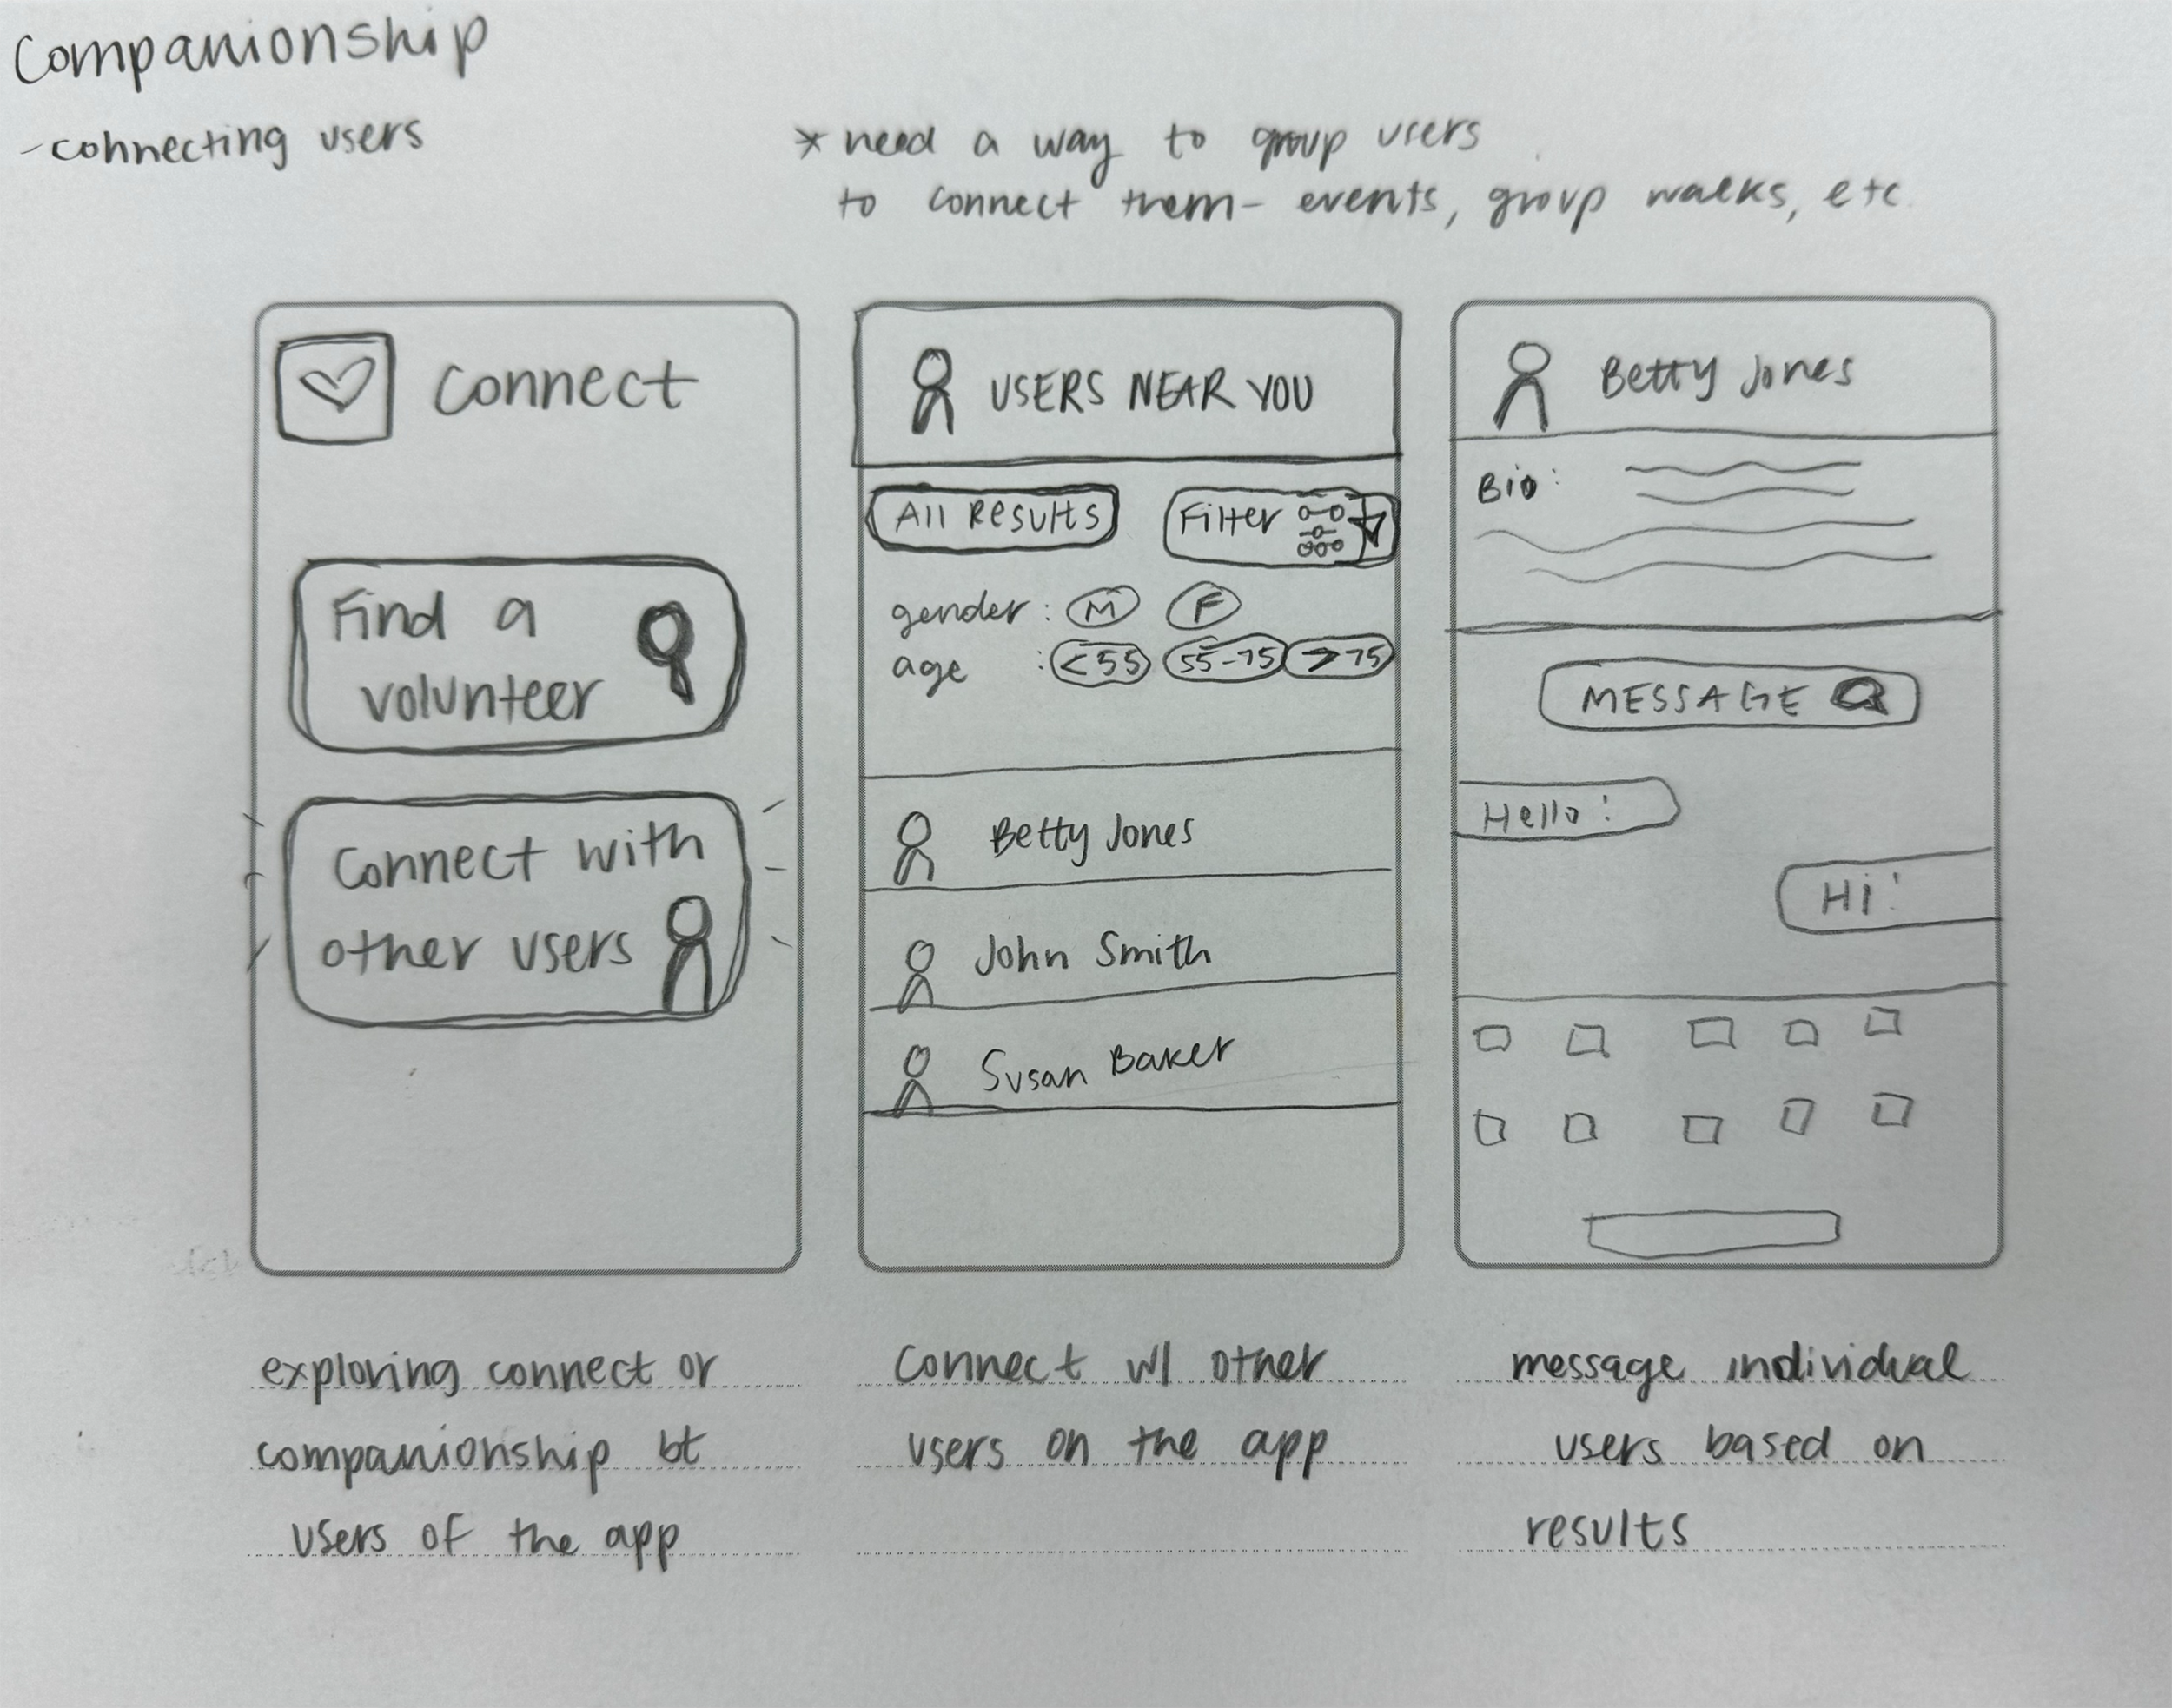 Companionship
-connecting users
* need a way to group users
to connect them - events, group walks, etc.
Connect
Find a
volunteer
Connect with
other users
exploring connect or
companionship bt
users of the app
USERS NEAR YOU
All Results
Filter
gender: M F
age : <55 55-75 >75
Betty Jones
John Smith
Susan Baker
Connect w/ other
users on the app
Betty Jones
Bio:
MESSAGE
Hello!
Hi!
message individual
users based on
results